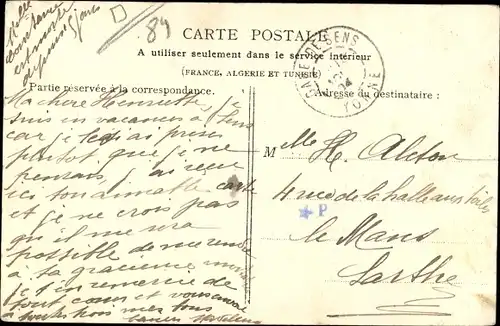 89
CARTE POSTALE
A utiliser seulement dans le service intérieur
(FRANCE, ALGERIE ET TUNISIE)
Partie réservée à la correspondance.
Adresse du destinataire :
GARE DE SENS
YONNE
Ma chère Henriette je
suis en vacances à Sens
car je les ai prises
plutôt que je ne
pensais j'ai reçu
ici ton aimable carte
et je ne crois pas
qu'il me sera
possible de me rendre
à ta gracieuse
je t'en remercie de
tout cœur et vous
tous
Melle H.
4 rue de la halle aux toiles
P
le Mans
Sarthe